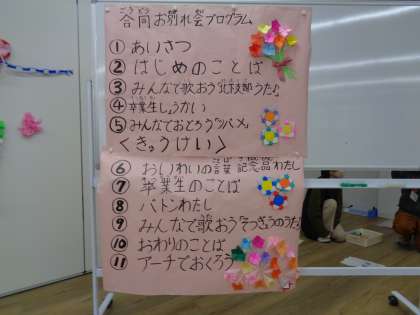 合同お別れ会プログラム
①あいさつ
②はじめのことば
③みんなで歌おう「北支部のうた♪」
④卒業生しょうかい
⑤みんなでおどろう「ツバメ」
〈きゅうけい〉
⑥おいわいの言葉 記念品わたし
⑦卒業生のことば
⑧バトンわたし
⑨みんなで歌おう「そつぎょうのうた♪」
⑩おわりのことば
⑪アーチでおくろう